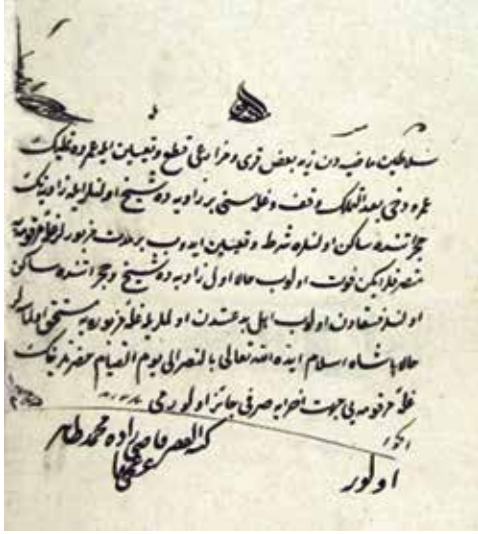 سلاطین ماضیه دن زید بعض قری و مزارعی قطع و تعیین ایله عمروه تملیك
عمرو دخی بعد التملك وقف و غله سنی بر زاویه ده شیخ اولنلر ایله زاویه نك
حجراتنده ساكن اولنلره شرط و تعیین ایدوب بر مدت مزبورلر غلهٔ مرقومه یه
متصرفلر ایكن فوت اولوب حالا اول زاویه ده شیخ و حجراتنده ساكن
اولنلر اولوب اهل بدعتدن اولملریله غلهٔ مزبوره یه مستحق
حالا پادشاه اسلام ایده الله تعالی بالنصر الی یوم القیام حضرتلرینك
غلهٔ مرقومه یی جهت اخرایه صرفی جائز اولورمی
الجواب
اولور
كتبه الفقیر قاضی زاده محمد طاهر
عفی عنهما